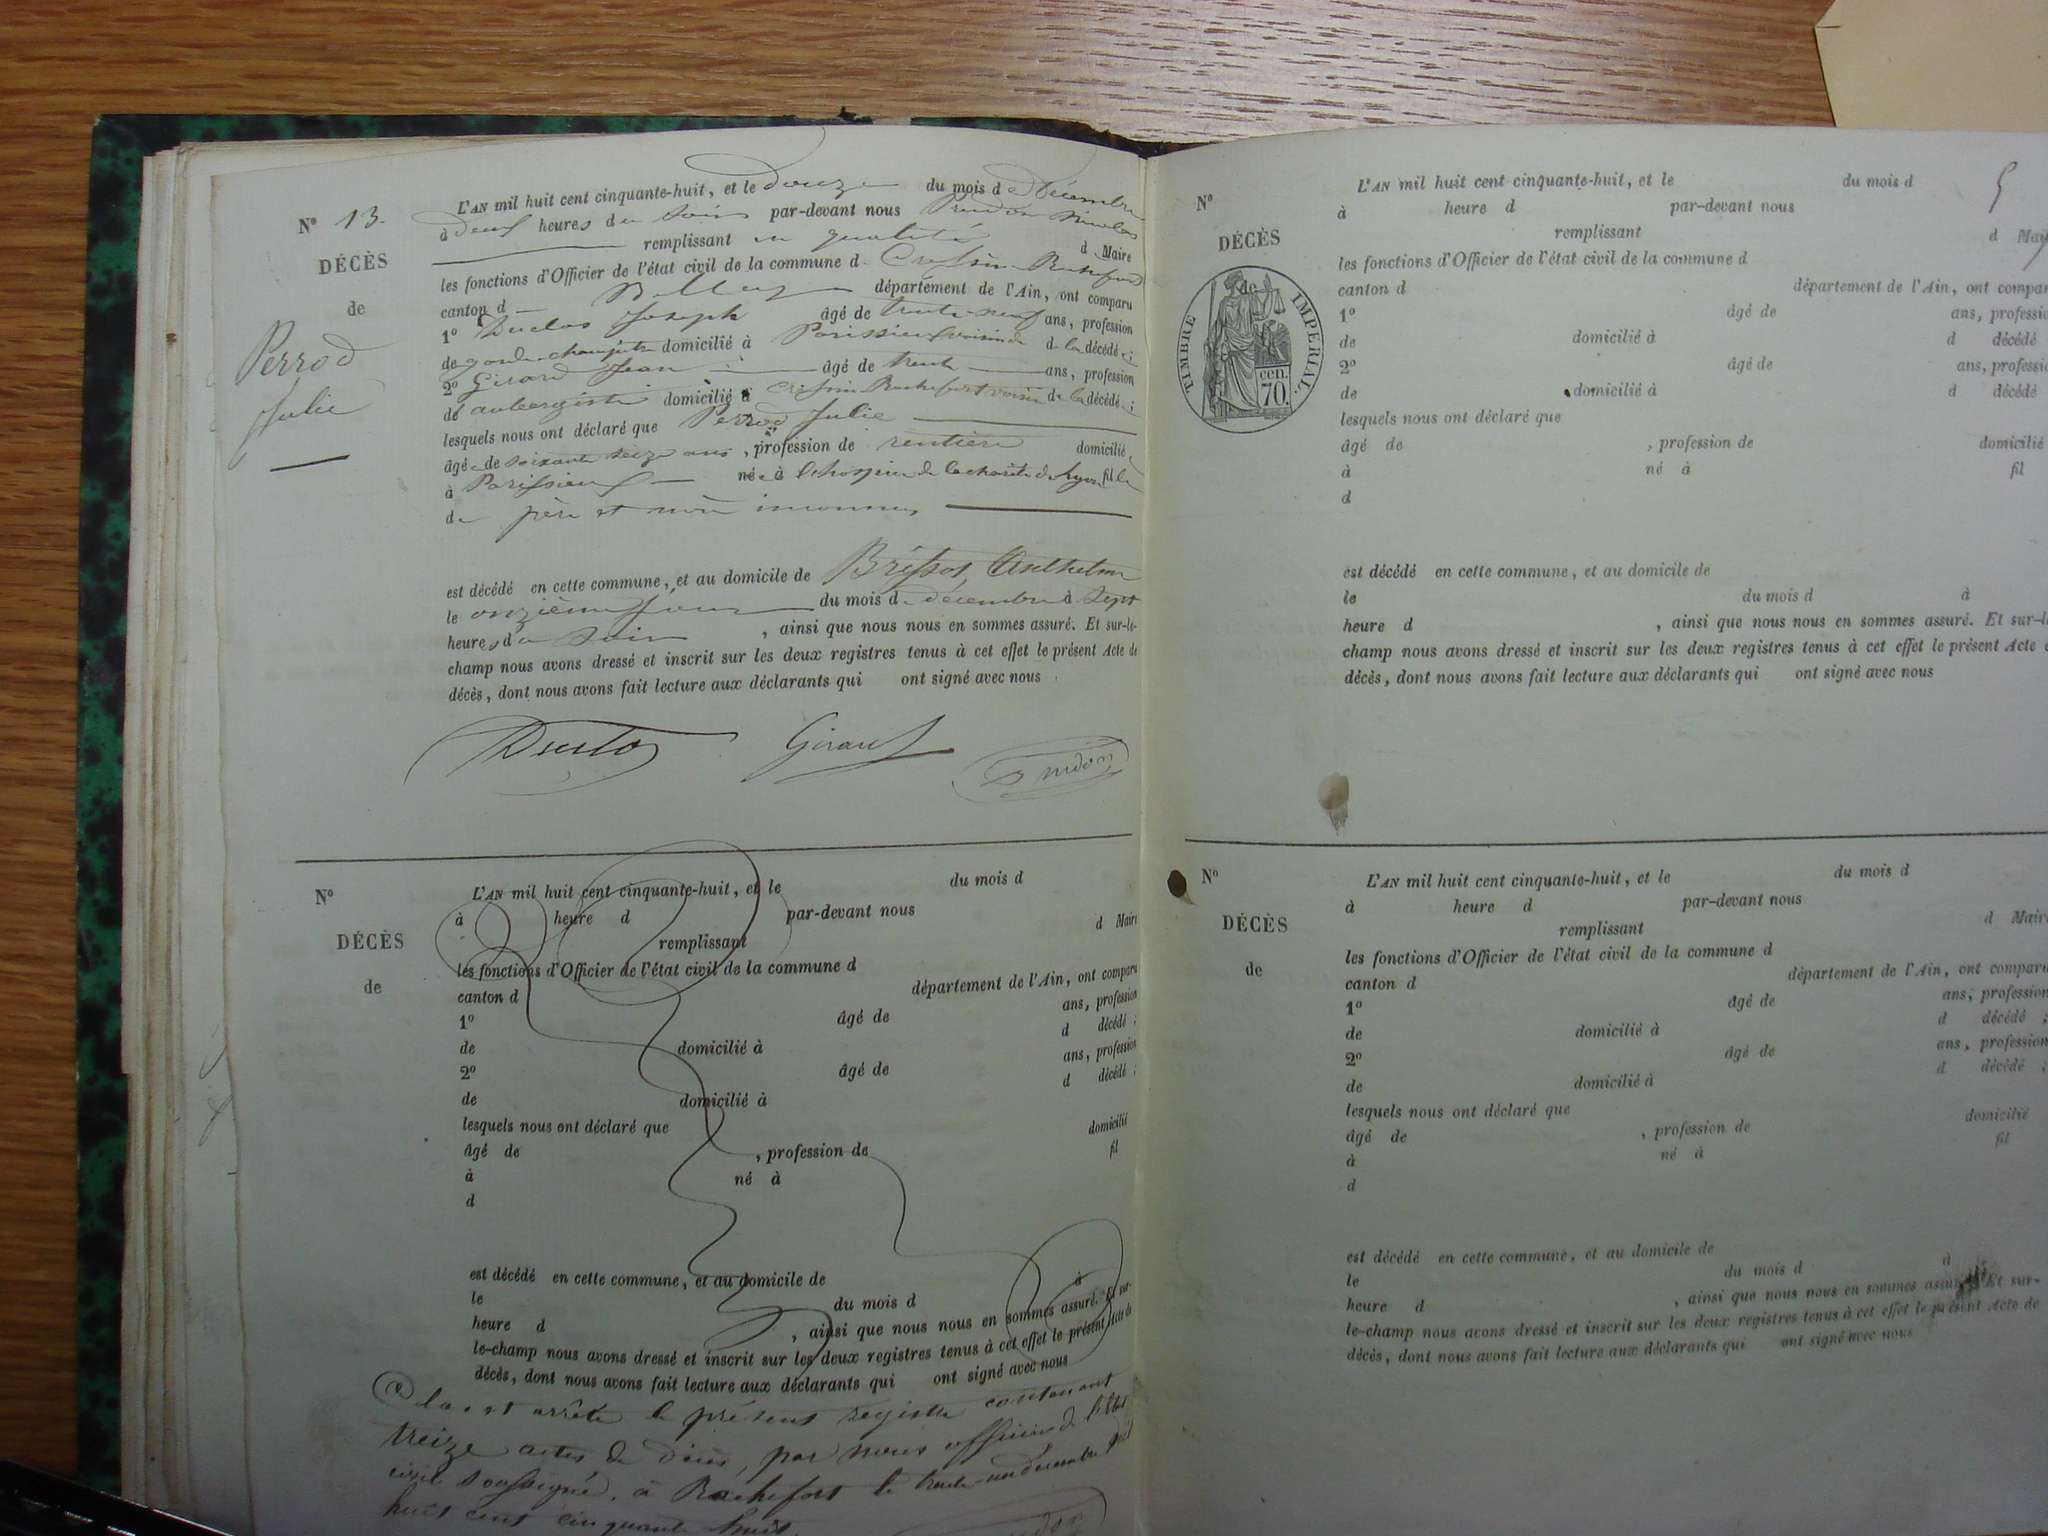 N° 13.
DÉCÈS
de
Perrod
Julie
L'AN mil huit cent cinquante-huit, et le douze du mois de Décembre
à deux heures du soir par-devant nous Prudon Nicolas
remplissant en qualité de Maire
les fonctions d'Officier de l'état civil de la commune de Cressin Rochefort
canton de Belley département de l'Ain, ont comparu
1° Duclos Joseph âgé de trente-neuf ans, profession
de garde champêtre domicilié à Parissieu voisin de la décédée;
2° Girard Jean âgé de trente ans, profession
de aubergiste domicilié à Cressin Rochefort voisin de la décédée;
lesquels nous ont déclaré que Perrod Julie
âgée de soixante seize ans, profession de rentière domiciliée
à Parissieu née à l'hospice de la charité de Lyon fille
de père et mère inconnus
est décédé en cette commune, et au domicile de Bressot Anthelme
le onzième jour du mois de décembre à sept
heures du soir, ainsi que nous nous en sommes assuré. Et sur-le-
champ nous avons dressé et inscrit sur les deux registres tenus à cet effet le présent Acte de
décès, dont nous avons fait lecture aux déclarants qui ont signé avec nous
Duclos Girard Prudon
N°
DÉCÈS
de
L'AN mil huit cent cinquante-huit, et le du mois d
à heure d par-devant nous
remplissant d Maire
les fonctions d'Officier de l'état civil de la commune d
canton d département de l'Ain, ont comparu
1° âgé de ans, profession
de domicilié à d décédé ;
2° âgé de ans, profession
de domicilié à d décédé ;
lesquels nous ont déclaré que
âgé de , profession de domicilié
à né à fil
d
est décédé en cette commune, et au domicile de
le du mois d à
heure d , ainsi que nous nous en sommes assuré. Et sur-
le-champ nous avons dressé et inscrit sur les deux registres tenus à cet effet le présent Acte de
décès, dont nous avons fait lecture aux déclarants qui ont signé avec nous
Clos et arrêté le présent registre contenant
treize actes de décès, par nous officier de l'état
civil soussigné, à Rochefort le trente-un décembre mil
huit cent cinquante huit.
Prudon
5
N°
DÉCÈS
de
TIMBRE IMPÉRIAL.
cen.
70.
L'AN mil huit cent cinquante-huit, et le du mois d
à heure d par-devant nous
remplissant d Maire
les fonctions d'Officier de l'état civil de la commune d
canton d département de l'Ain, ont compar
1° âgé de ans, professio
de domicilié à d décédé
2° âgé de ans, professio
de domicilié à d décédé
lesquels nous ont déclaré que
âgé de , profession de domicilié
à né à fil
d
est décédé en cette commune, et au domicile de
le du mois d à
heure d , ainsi que nous nous en sommes assuré. Et sur-l
champ nous avons dressé et inscrit sur les deux registres tenus à cet effet le présent Acte
décès, dont nous avons fait lecture aux déclarants qui ont signé avec nous
N°
DÉCÈS
de
L'AN mil huit cent cinquante-huit, et le du mois d
à heure d par-devant nous
remplissant d Maire
les fonctions d'Officier de l'état civil de la commune d
canton d département de l'Ain, ont comparu
1° âgé de ans, profession
de domicilié à d décédé ;
2° âgé de ans, profession
de domicilié à d décédé ;
lesquels nous ont déclaré que
âgé de , profession de domicilié
à né à fil
d
est décédé en cette commune, et au domicile de
le du mois d à
heure d , ainsi que nous nous en sommes assuré. Et sur-
le-champ nous avons dressé et inscrit sur les deux registres tenus à cet effet le présent Acte de
décès, dont nous avons fait lecture aux déclarants qui ont signé avec nous